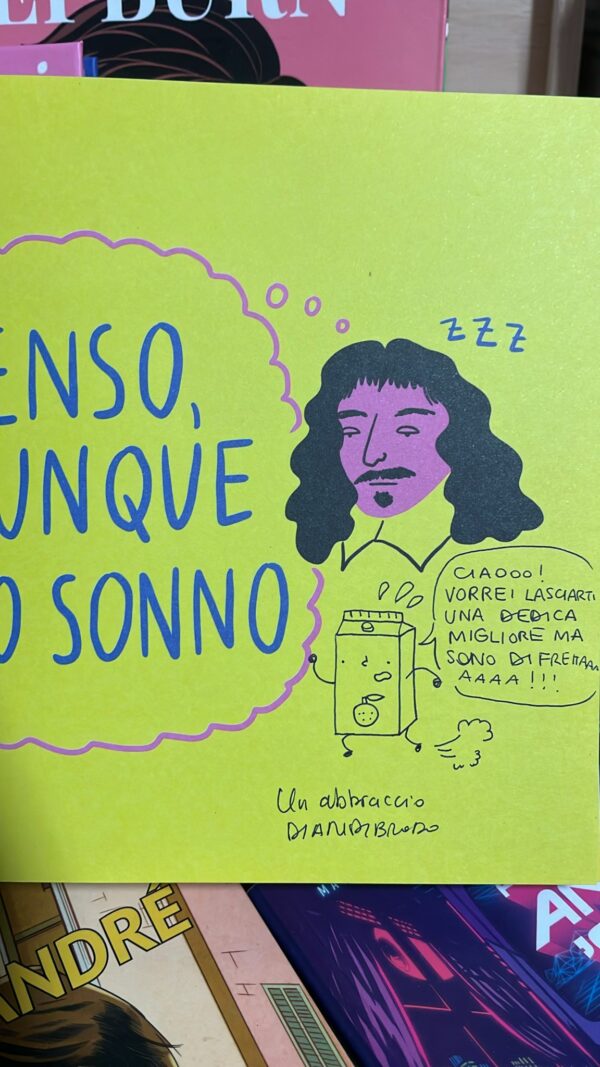 BURN
ZZZ
ENSO,
UNQUE
O SONNO
CIAOOO!
VORREI LASCIARTI
UNA DEDICA
MIGLIORE MA
SONO DI FRETTAAAA
AAAA!!!
Un abbraccio
DIANDIBRODO
ANDRÉ
AN